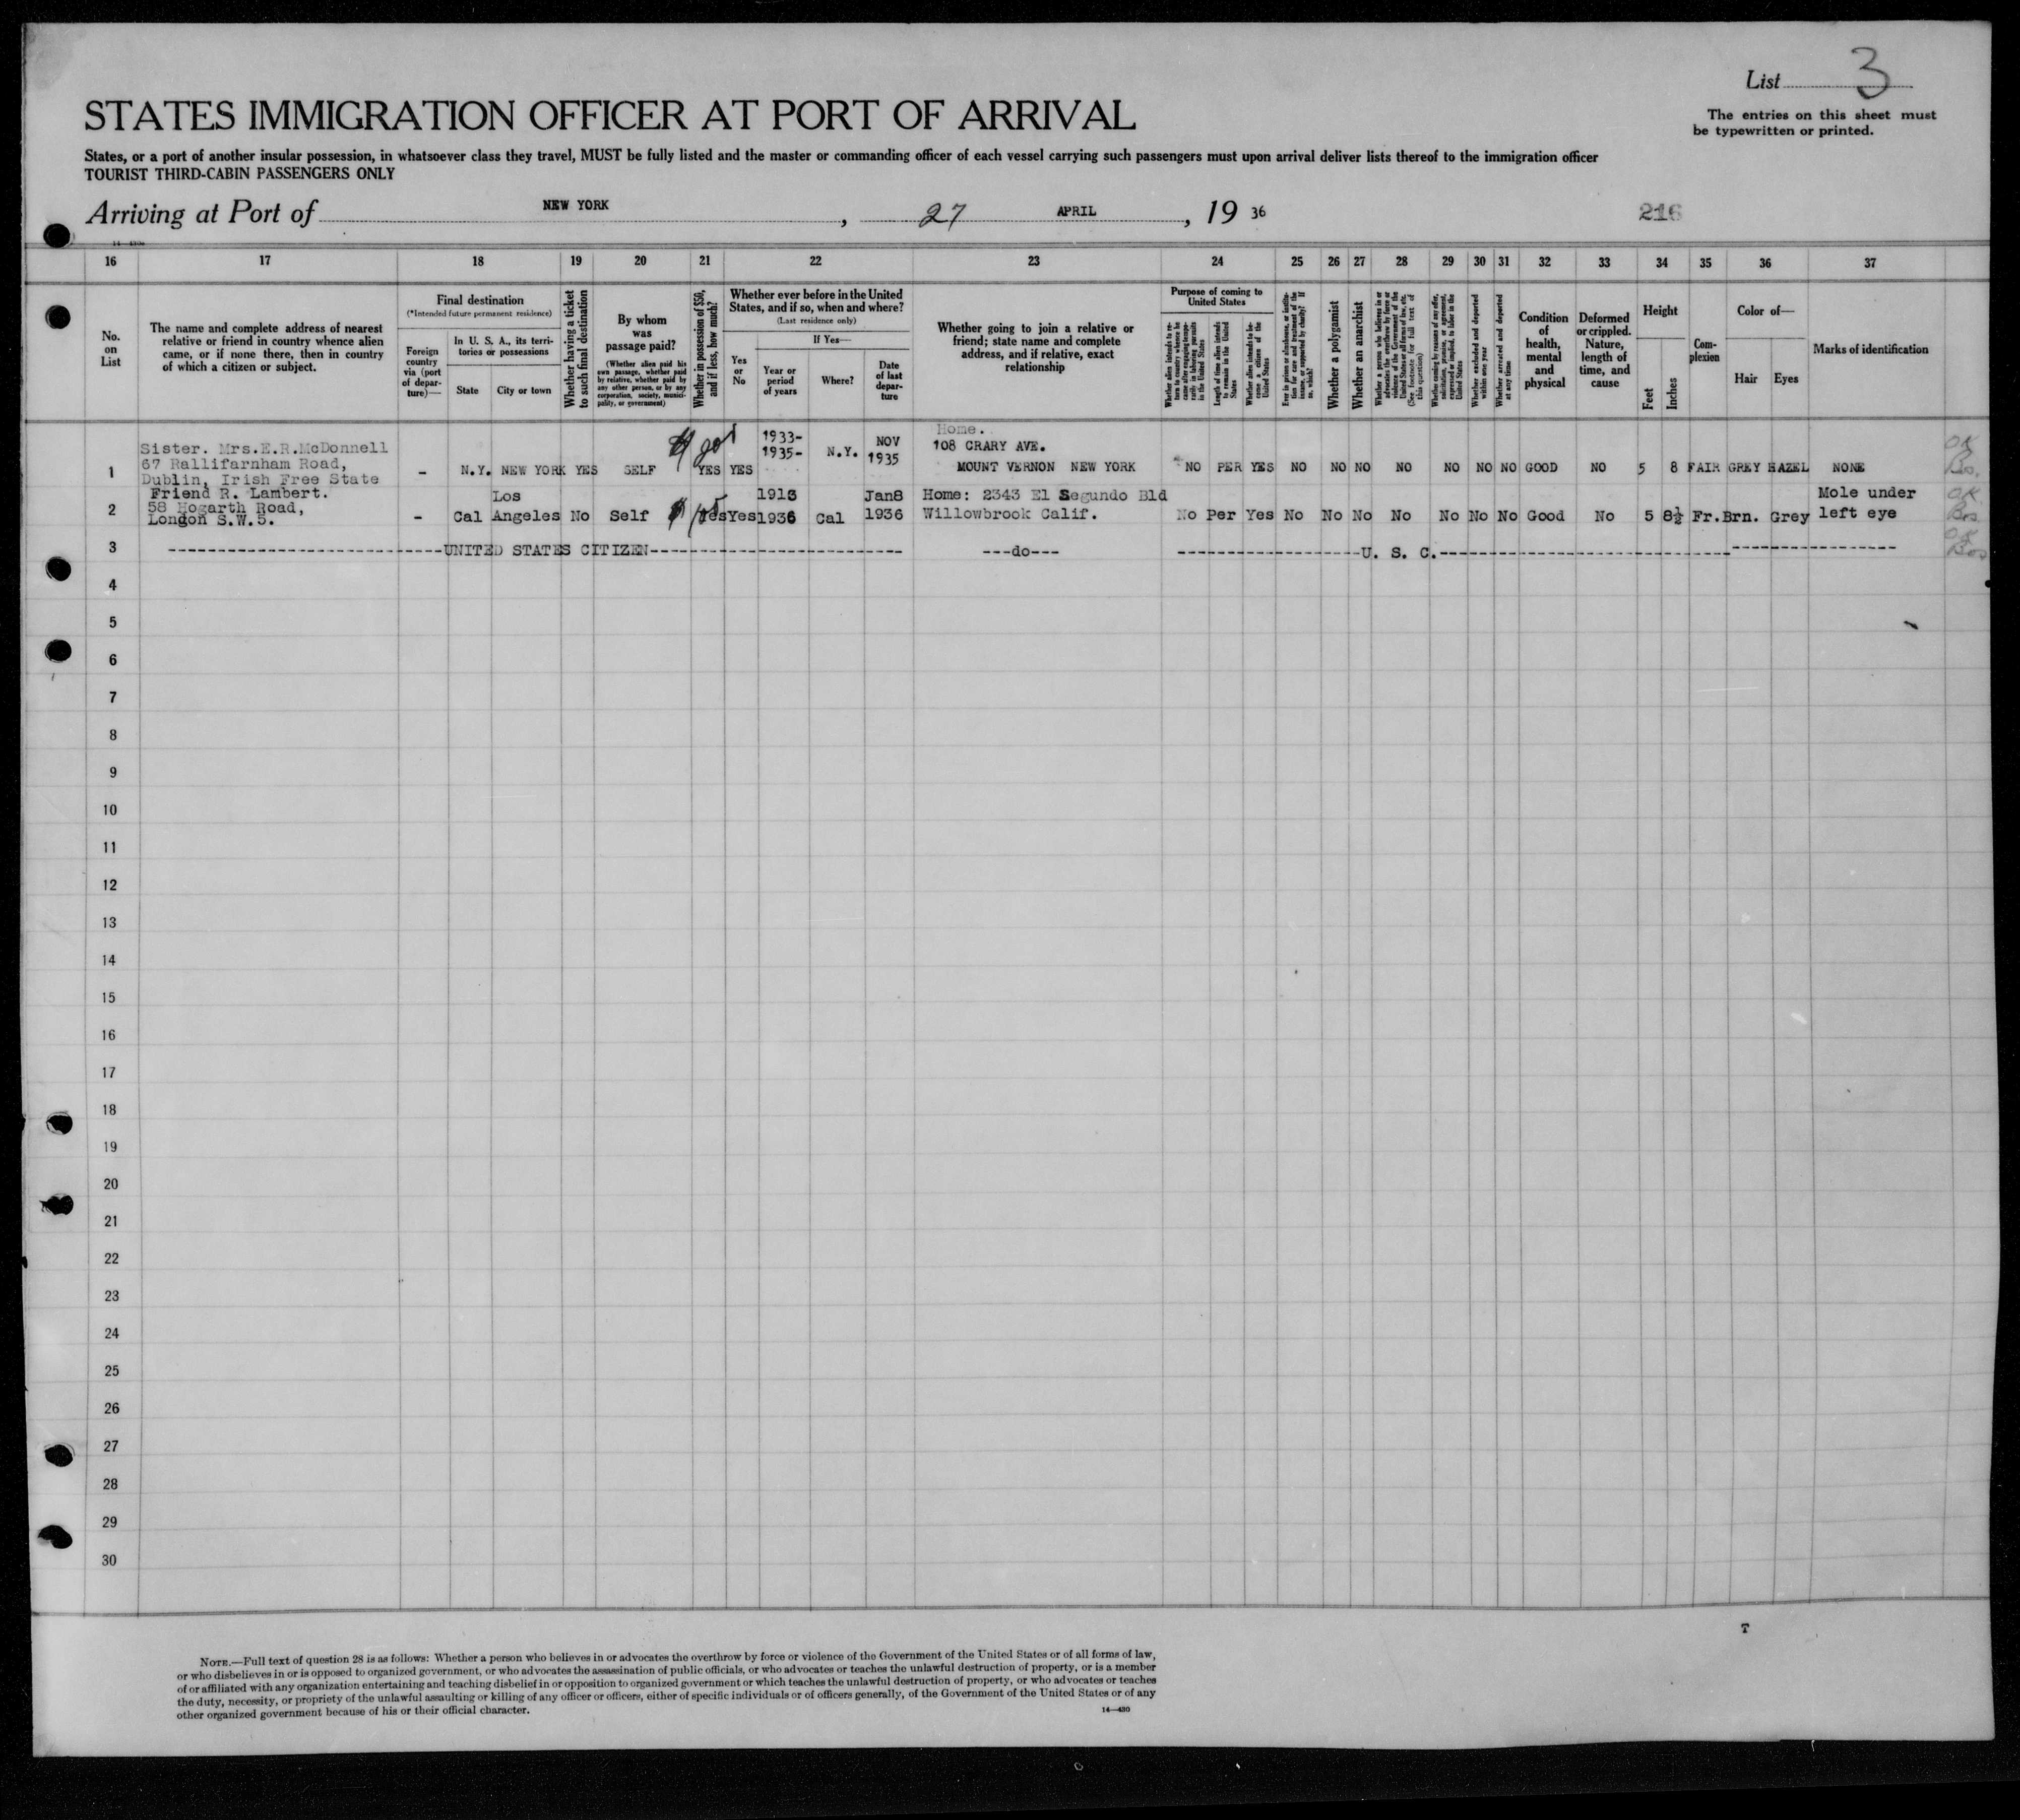 List 3
The entries on this sheet must
be typewritten or printed.
STATES IMMIGRATION OFFICER AT PORT OF ARRIVAL
States, or a port of another insular possession, in whatsoever class they travel, MUST be fully listed and the master or commanding officer of each vessel carrying such passengers must upon arrival deliver lists thereof to the immigration officer
TOURIST THIRD-CABIN PASSENGERS ONLY
Arriving at Port of NEW YORK, 27 APRIL, 19 36
216
16 17 18 19 20 21 22 23 24 25 26 27 28 29 30 31 32 33 34 35 36 37
No.
on
List
The name and complete address of nearest
relative or friend in country whence alien
came, or if none there, then in country
of which a citizen or subject.
Final destination
(*Intended future permanent residence)
Foreign
country
via (port
of depar-
ture)—
In U. S. A., its terri-
tories or possessions
State
City or town
Whether having a ticket
to such final destination
By whom
was
passage paid?
(Whether alien paid his
own passage, whether paid
by relative, whether paid by
any other person, or by any
corporation, society, munici-
pality, or government)
Whether in possession of $50,
and if less, how much?
Whether ever before in the United
States, and if so, when and where?
(Last residence only)
Yes
or
No
If Yes—
Year or
period
of years
Where?
Date
of last
depar-
ture
Whether going to join a relative or
friend; state name and complete
address, and if relative, exact
relationship
Purpose of coming to
United States
Length of time alien intends
to remain in the United
States
Whether alien intends to be-
come a citizen of the
United States
Whether a polygamist
Whether an anarchist
(See footnote for full text of
this question)
Whether excluded and deported
within one year
Whether arrested and deported
at any time
Condition
of
health,
mental
and
physical
Deformed
or crippled.
Nature,
length of
time, and
cause
Height
Feet
Inches
Com-
plexion
Color of—
Hair
Eyes
Marks of identification
Sister. Mrs.E.R.McDonnell
67 Rallifarnham Road,
Dublin, Irish Free State
1 – N.Y. NEW YORK YES SELF YES YES 1933-
1935- N.Y. NOV
1935 Home.
108 CRARY AVE.
MOUNT VERNON NEW YORK NO PER YES NO NO NO NO NO NO NO GOOD NO 5 8 FAIR GREY HAZEL NONE OK
Friend R. Lambert.
58 Hogarth Road,
London S.W.5.
2 – Cal Los
Angeles No Self Yes Yes 1913
1936 Cal Jan8
1936 Home: 2343 El Segundo Bld
Willowbrook Calif. No Per Yes No No No No No No No Good No 5 8½ Fr. Brn. Grey Mole under
left eye OK
3 ----UNITED STATES CITIZEN---- ---do--- ----U. S. C.---- OK
4
5
6
7
8
9
10
11
12
13
14
15
16
17
18
19
20
21
22
23
24
25
26
27
28
29
30
T
NOTE.—Full text of question 28 is as follows: Whether a person who believes in or advocates the overthrow by force or violence of the Government of the United States or of all forms of law,
or who disbelieves in or is opposed to organized government, or who advocates the assassination of public officials, or who advocates or teaches the unlawful destruction of property, or is a member
of or affiliated with any organization entertaining and teaching disbelief in or opposition to organized government or which teaches the unlawful destruction of property, or who advocates or teaches
the duty, necessity, or propriety of the unlawful assaulting or killing of any officer or officers, either of specific individuals or of officers generally, of the Government of the United States or of any
other organized government because of his or their official character.
14—430